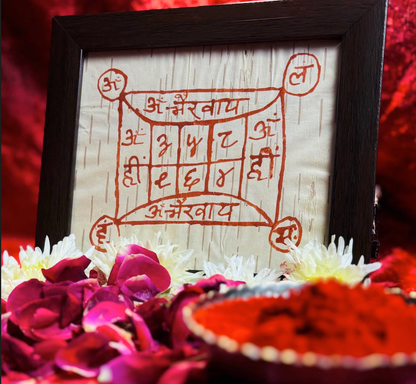 ॐ ल
ॐ भैरवाय
ॐ ३ ५ ८ ॐ
ह्रीं १ ६ ४ ह्रीं
ॐ भैरवाय